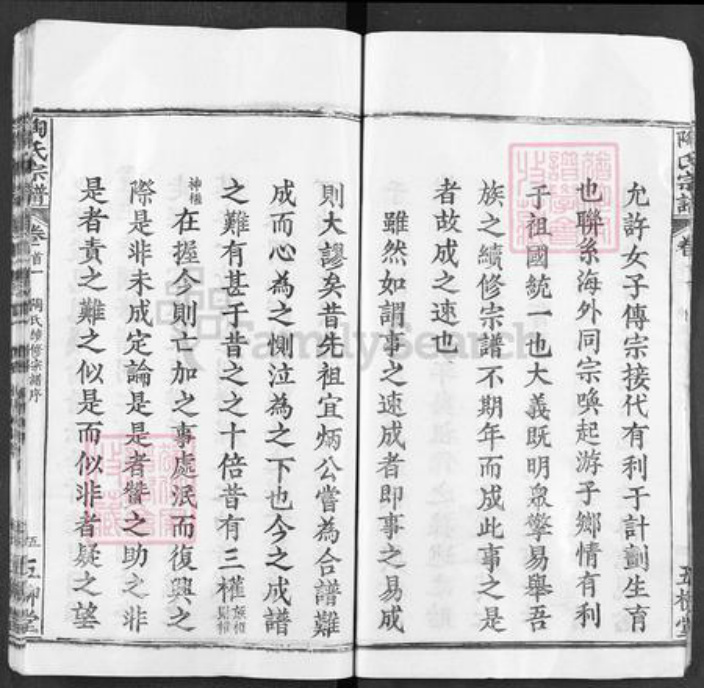 陶氏宗譜
允許女子傳宗接代有利于計劃生育
也聯系海外同宗喚起游子鄉情有利
于祖國統一也大義既明衆擎易舉吾
族之續修宗譜不期年而成此事之是
者故成之速也
雖然如謂事之速成者即事之易成
則大謬矣昔先祖宜炳公嘗為合譜難
成而心為之惻泣為之下也今之成譜
之難有甚于昔之之十倍昔有三權族權
神權在握今則亡加之事處泯而復興之
際是非未成定論是是者贊之助之非
是者責之難之似是而似非者疑之望
陶氏宗譜 卷首一 陶氏續修宗譜序 五 五柳堂
FamilySearch